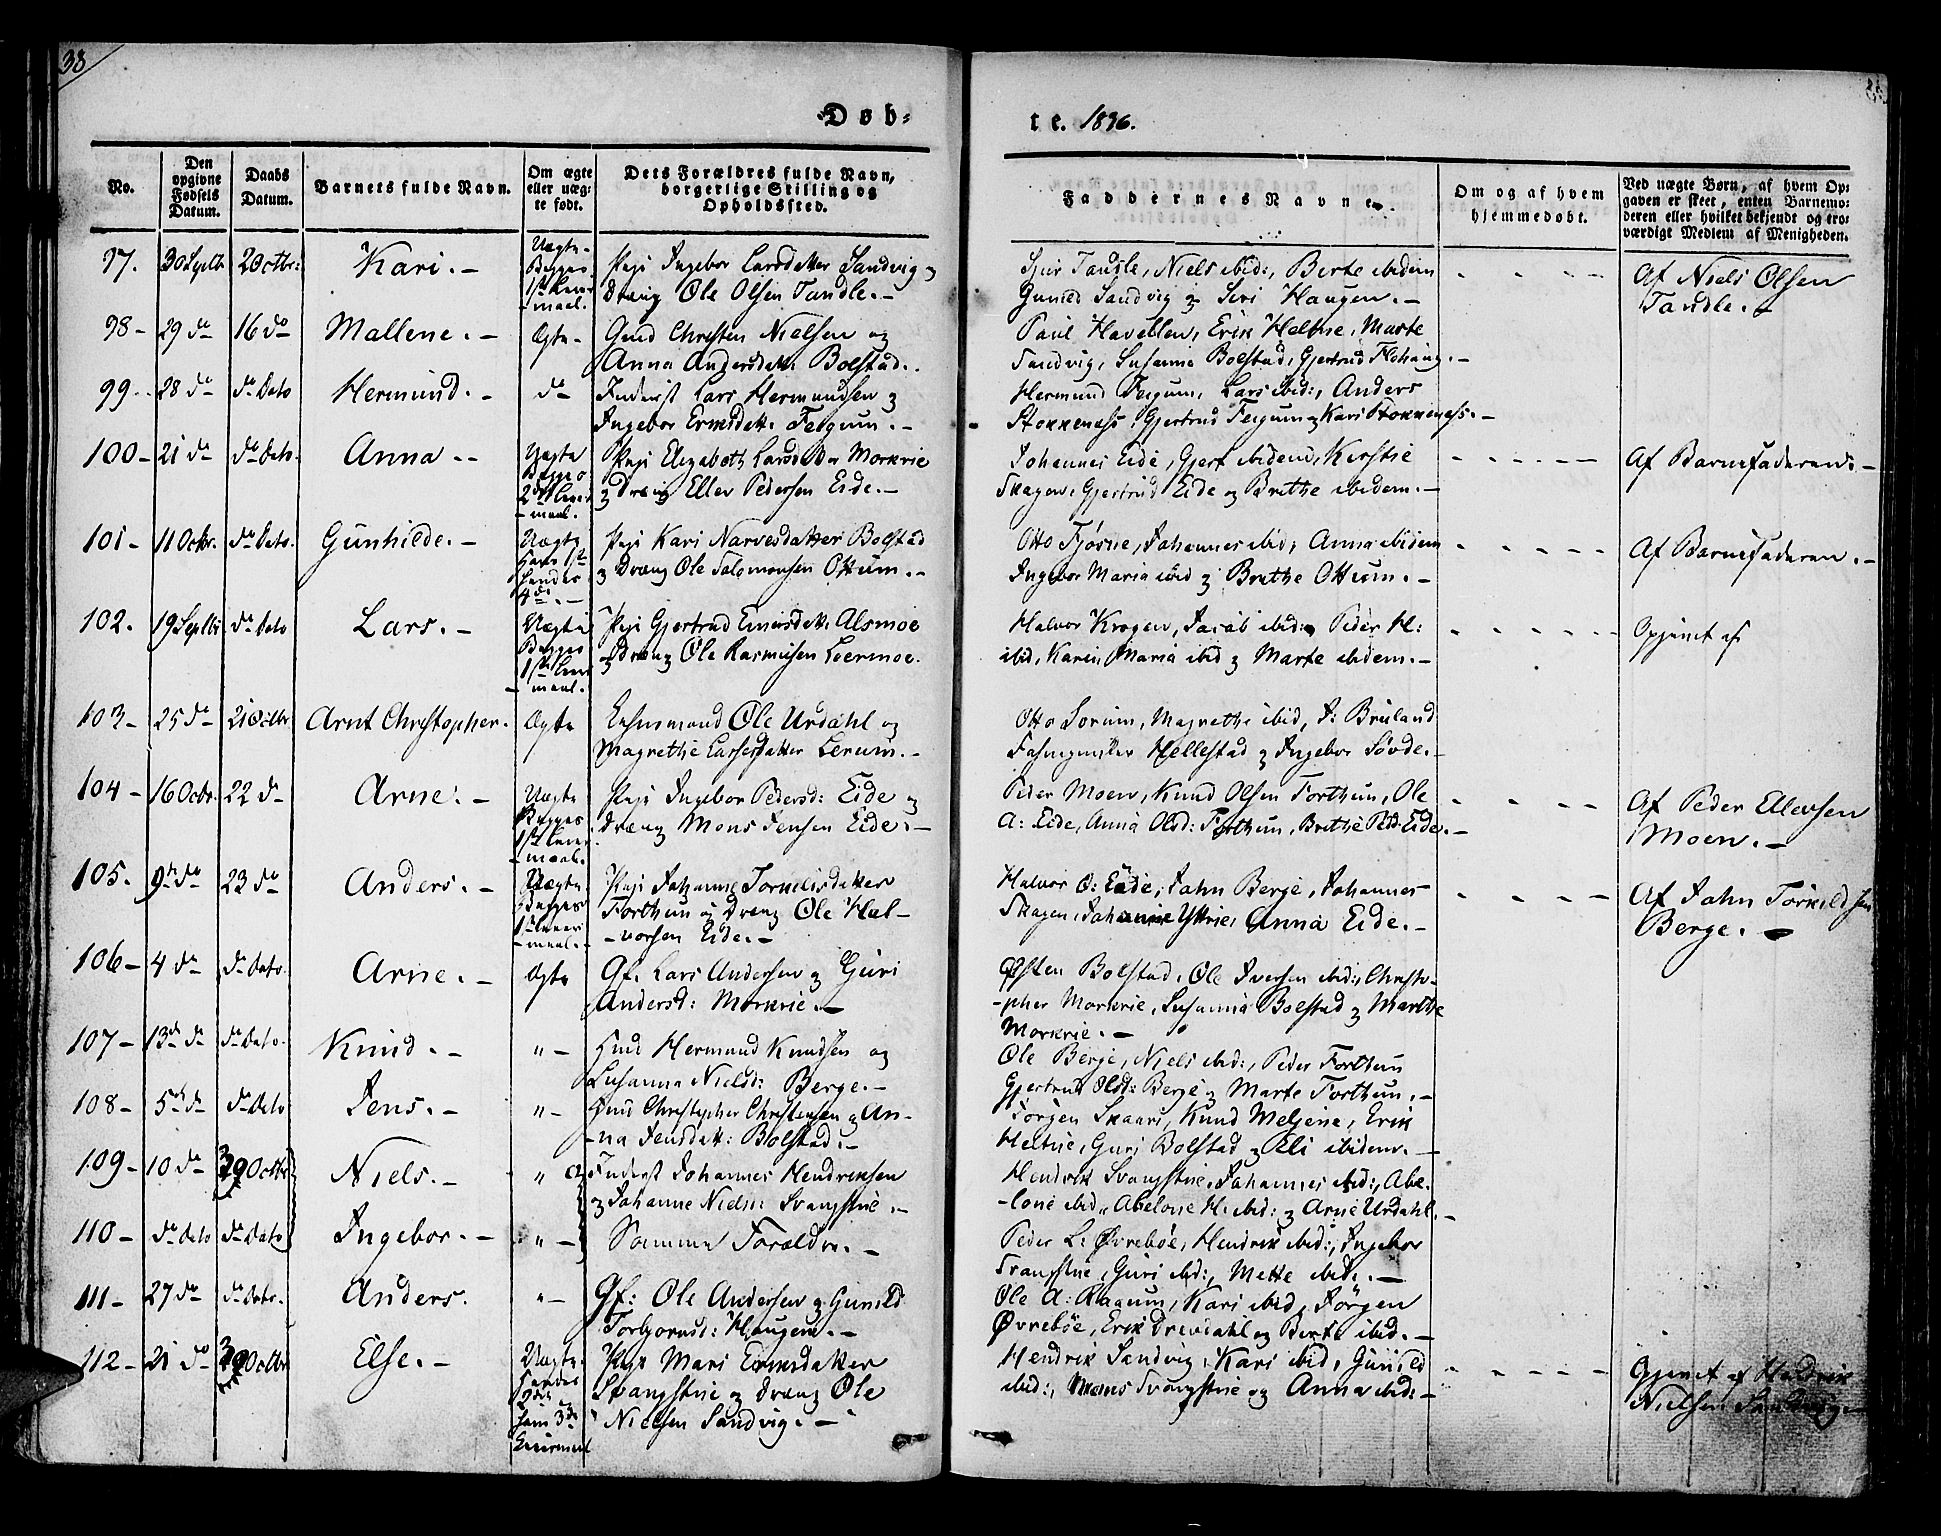 38
Døb-
te. 1836.
No.
Den opgivne Fødsels Datum.
Daabs Datum.
Barnets fulde Navn.
Om ægte eller uægte født.
Dets Forældres fulde Navn, borgerlige Stilling og Opholdssted.
Faddernes Navne.
Om og af hvem hjemmedøbt.
Ved uægte Børn, af hvem Opgaven er skeet, enten Barnemoderen eller hvilket bekjendt og troværdigt Medlem af Menigheden.
97. 30 Septb 2 Octbr: Kari. Uægte Begges 1ste Leiermaal. Pige Ingebor Larsdatter Sandvig og
Dreng Ole Olsen Tandle.
Niels ibid:, Berte ibidem
Gunild Sandvig og Siri Haugen.
Af Niels Olsen
Tandle.
98 29 do 16 do Mallene. Ægte Gmd Christen Nielsen og
Anna Andersdatt: Bolstad.
Paul Erik Marte
Sandvig, Susanna Bolstad, Gjertrud
99 28 do do Dato Hermund. do Inderst Lars Hermundsen og
Ingebor Eriksdatt: Fergum.
Hermund Fergum, Lars ibid:, Anders
Stokkenæss, Gjertrud Fergum og Kari Stokkenæss.
100 21 do do Dato Anna Uægte Begges 2det Leiermaal. Pige Elizabeth Larsdatter Morkrie
og Dreng Ellev Pedersen Eide.
Johannes Eide, Gjert ibidem, Kirstie
Skagen, Gjertrud Eide og Brithe ibidem.
Af Barnefaderen
101 11 Octbr. do Dato. Gunhilde. Uægte Hans 1ste Hendes 4de Pige Kari Narvesdatter Bolstad
og Dreng Ole Salomonsen Ottum.
Otto Fjøsne, Johannes ibid, Anna ibidem
Ingebor Maria ibid og Brithe Ottum.
Af Barnefaderen.
102. 19 Septbr do Dato Lars. Uægte Begges 1ste Leiermaal. Pige Gjertrud Alsmoe
og Dreng Ole Rasmusen Leermoe.
Halvor Krogen, Jacob ibid: Peder H:
ibid, Karin Maria ibid og Marte ibidem.
Opgivet af
103 25 do 21 Octbr Arnt Christopher. Ægte Ole Urdahl og
Magrethe Larsesdatter Lerum.
Otto Sorum, Magrethe ibid, J: Bruland
Hellestad og Ingebor Søvde.
104 16 Octbr. 22 do Arne. Uægte Begges 1ste Leiermaal. Pige Ingebor Pedersd: Eide og
Dreng Mons Jensen Eide.
Peder Moen, Knud Olsen Forthun, Ole
A: Eide, Anna Olsd: Forthun, Brithe Ped: Eide.
Af Peder Ellevsen
Moen.
105. 9de do 23 do Anders. Uægte Begges 1ste Leiermaal. Pige Johanne Torkelisdatter
Forthun og Dreng Ole Hal-
vorsen Eide.
Halvor O: Eide, John Berge, Johannes
Skagen, Johanne Yttrie, Anna Eide.
Af John Torkildsen
Berge.
106 4 do do Dato. Arne. Ægte Gf. Lars Andersen og Guri
Andersd: Morkrie.
Østen Bolstad, Ole Iversen ibid:, Christo-
pher Morkrie, Susanna Bolstad og Marthe
Morkrie.
107 13de do do Dato. Knud. " Hmd Hermund Knudsen og
Susanna Nielsd: Berge.
Ole Berge, Niels ibid:, Peder Forthun
Gjertrud Olsd: Berge og Marte Forthun.
108 5te do do Dato Jens. " Gmd Christopher Christensen og An-
na Jensdatt: Bolstad.
Jørgen Skaari, Knud Erik
Guri Bolstad og Eli ibidem.
109 10 do 30 Octbr Niels. " Inderst Johannes Hendriksen
og Johanne Niels: Svangstrie.
Hendrik Svangstrie, Johannes ibid:, Abe-
lone ibid, Abelone H: ibid: og Arne Urdahl.
110 do Dato do Dato Ingebor. " Samme Forældre.
Peder L: Øvrebøe, Hendrik ibid:, Ingebor
Svangstrie, Guri ibid:, Mette ibid:.
111 27 do do Dato. Anders. " Gf: Ole Andersen og Gunild
Torbjørnsd: Haugen.
Ole A: Kari ibid, Jörgen
Øvrebøe, Erik Drevdahl og Berte ibid.
112 21 do 30 Octbr Else. Uægte Hendes 2det hans 3die Leiermaal Pige Mari Eriksdatter
Svangstrie og Dreng Ole
Nielsen Sandvig.
Hendrik Sandvig, Kari ibid, Gunild
ibid:, Mons Svangstrie og Anna ibid:
Opgivet af
Nielsen Sandvig